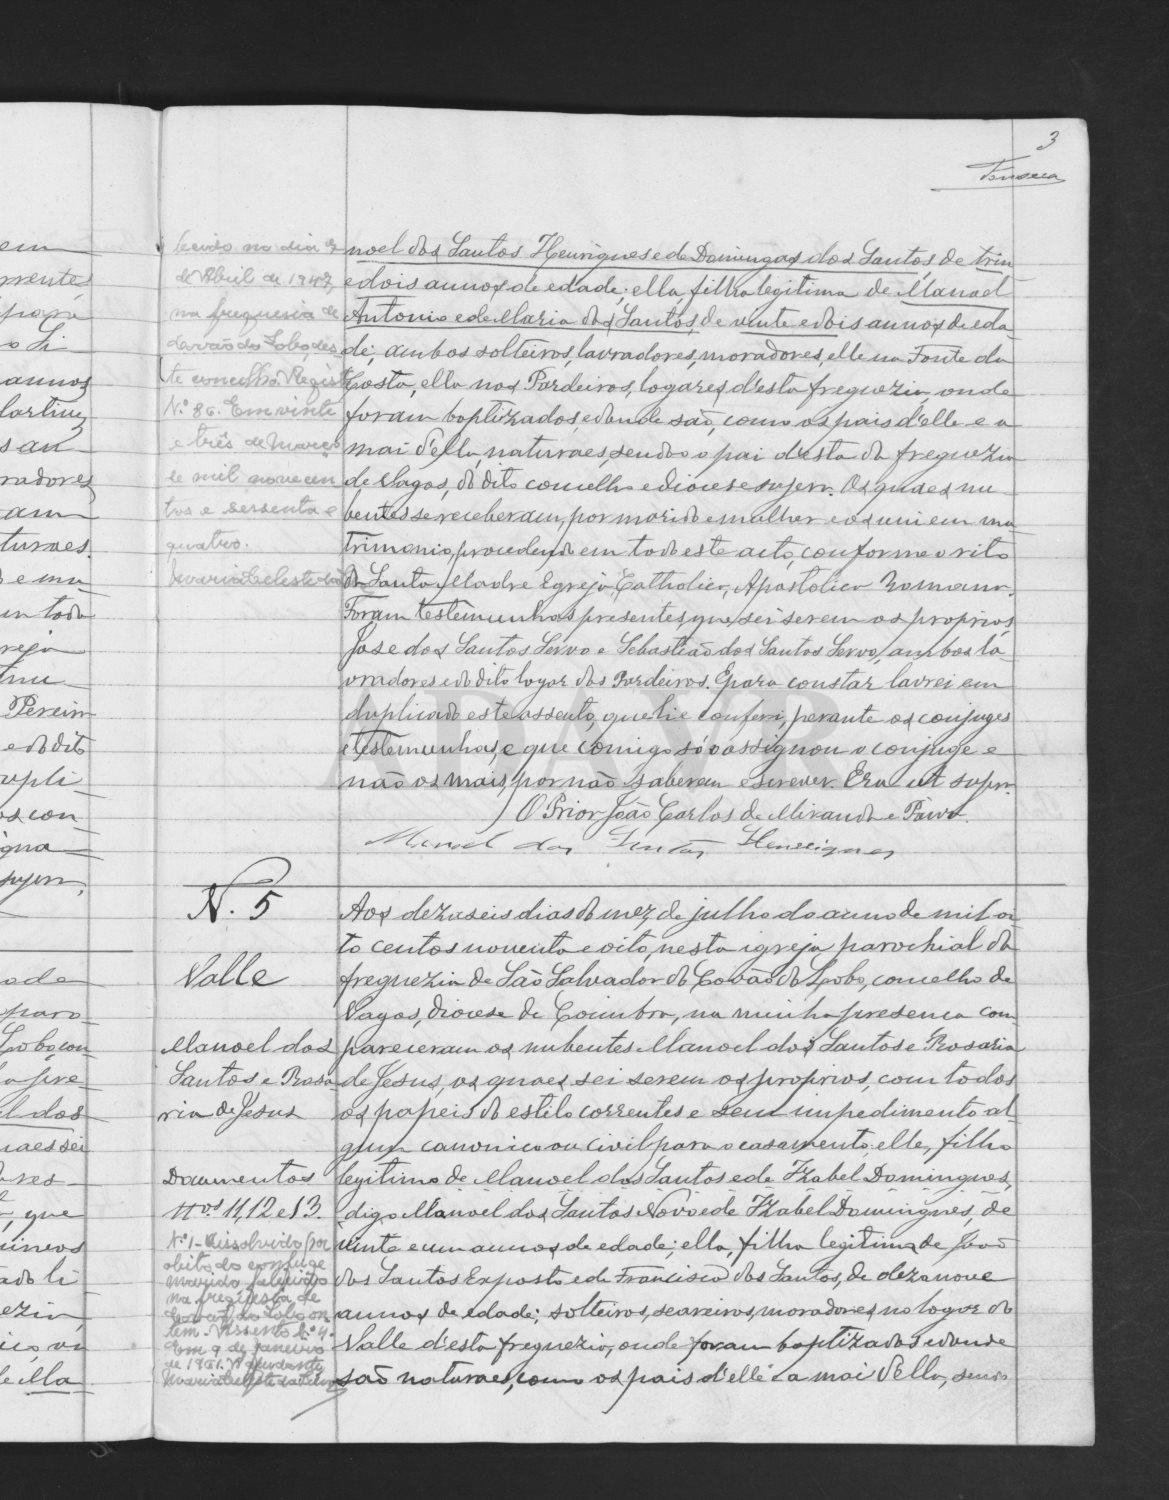 3
Fonseca
lecido no dia
de Abril de 1947
na freguesia de
Covão do Lobo, des
te concelho. Regist
N.º 86. Em vinte
e três de Março
de mil novecen
tos e sessenta e
quatro.
Maria Celeste
noel dos Santos Henriques e de Domingas dos Santos, de trin
e dois annos de edade; ella, filha legitima de Manoel
Antonio e de Maria dos Santos, de vinte e dois annos de eda
de, ambos solteiros, lavradores, moradores, elle na Fonte da
Costa, ella nos Pardeiros, logares d'esta freguezia, onde
foram baptizados, e donde são, como os pais d'elle e a
mai d'ella, naturaes, sendo o pai d'esta da freguezia
de Vagos, do dito concelho e diocese supra. Os quaes nu
bentes se receberam, por marido e mulher e os uni em ma
trimonio, procedendo em todo este acto, conforme o rito
da Santa Madre Egreja, Catholica, Apostolica Romana.
Foram testemunhas presentes, que sei serem os proprios,
José dos Santos Servo e Sebastião dos Santos Servo, ambos la
vradores e do dito logar dos Pardeiros. E para constar lavrei em
duplicado este assento, que li e conferi, perante os conjuges
e testemunhas, e que comigo só o assignou o conjuge e
não os mais, por não saberem escrever. Era ut supra.
O Prior João Carlos de Miranda e Paiva.
Manoel dos Santos Henriques
N. 5
Valle
Manoel dos
Santos e Rosa
ria de Jesus
Documentos
nos 11, 12 e 13.
N.º 1 - Dissolvido por
obito do conjuge
marido, falecido
na freguesia de
Covão do Lobo on
tem. Assento N.º 4.
Em 9 de Janeiro
de 1961. O Ajudante
Maria Celeste
Aos dezaseis dias do mez de julho do anno de mil oi
to centos noventa e oito, nesta igreja parochial da
freguezia de São Salvador do Covão do Lobo, concelho de
Vagos, diocese de Coimbra, na minha presença com
pareceram os nubentes Manoel dos Santos e Rosaria
de Jesus, os quaes sei serem os proprios, com todos
os papeis do estilo correntes e sem impedimento al
gum canonico ou civil para o casamento; elle, filho
legitimo de Manoel dos Santos e de Izabel Domingues,
digo Manoel dos Santos Novo e de Izabel Domingues, de
vinte e um annos de edade; ella, filha legitima de João
dos Santos Exposto e de Francisca dos Santos, de dezanove
annos de edade; solteiros, seareiros, moradores no logar do
Valle d'esta freguezia, onde foram baptizados e donde
são naturaes, como os pais d'elle e a mai d'ella, sendo